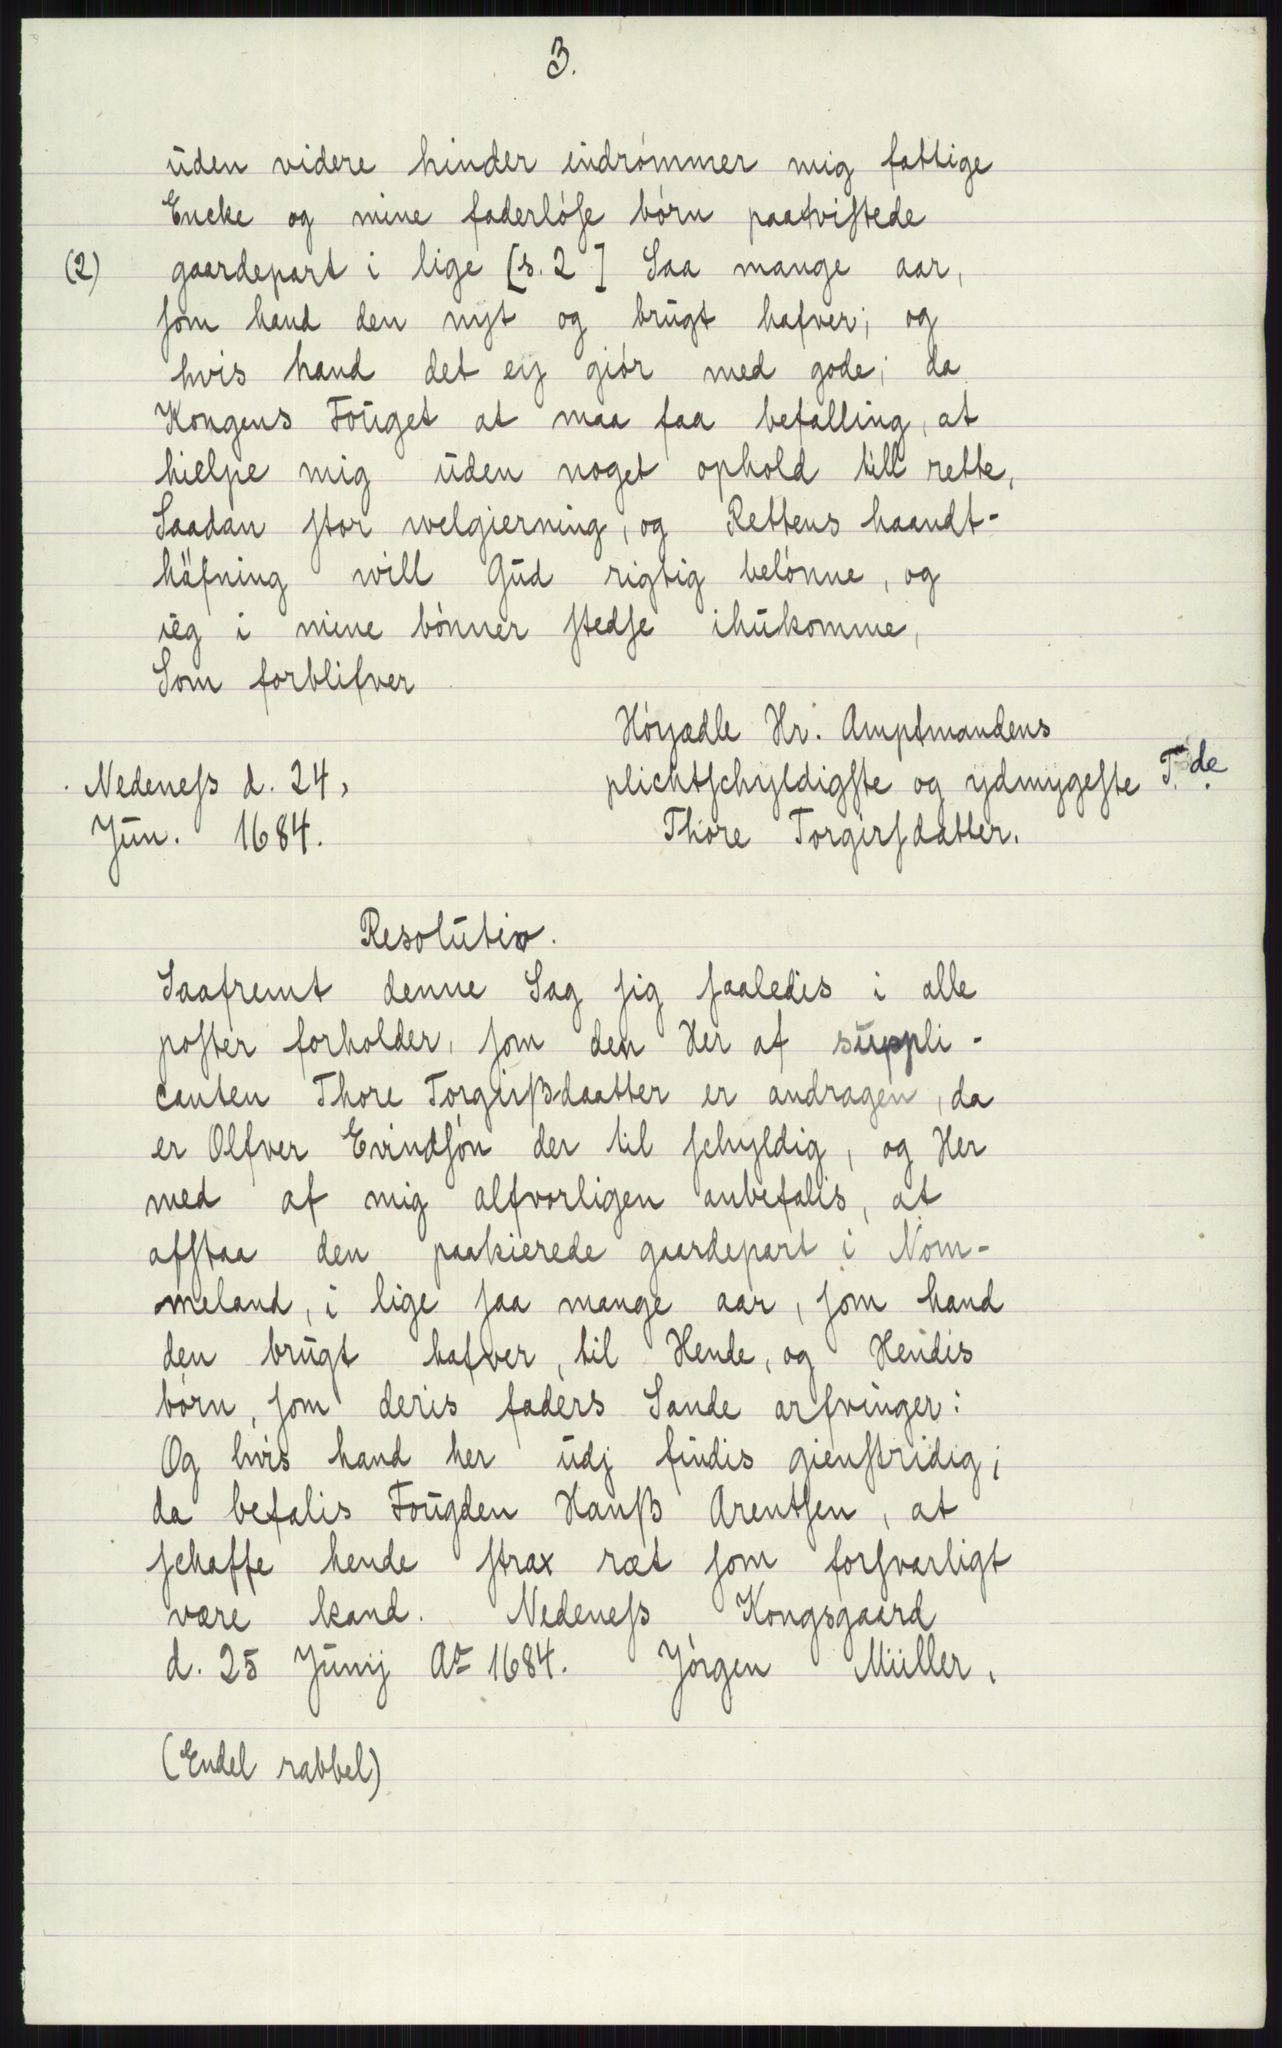 3.
uden videre hinder indrómmer mig fattige
Encke og mine faderlóse bórn paatvistede
(2) gaardepart i lige [s. 2] Saa mange aar,
som hand den nyt og brugt hafver; og
hvis hand det eij giór med gode; da
Kongens Fouget at maa faa befalling, at
hielpe mig uden noget ophold till rette,
Saadan stor welgierning, og Rettens haandt-
häfning will Gud rigtig belónne, og
ieg i mine bónner stedse ihukomme,
Som forblifver
Hóyædle Hr. Amptmandens
plichtschyldigste og ydmygeste T. de.
Nedeness d. 24,
Jun. 1684.
Thore Torgirsdatter.
Resolutio.
Saafremt denne Sag sig saaledis i alle
poster forholder, som den Her af suppli-
canten Thore Torgirßdaatter er andragen, da
er Olfver Evindsón der til schyldig, og Her
med af mig alfvorligen anbefalis, at
afstaa den paakierede gaardepart i Nom-
meland, i lige saa mange aar, som hand
den brugt hafver, til Hende, og Hendis
bórn, som deris faders Sande arfvinger:
Og hvis hand her udj findis gienstridig;
da befalis Fougden Hanß Arentsen, at
schaffe hende strax ræt som forsvarligt
være kand. Nedeness Kongsgaard
d. 25 Junij Ao 1684. Jórgen Müller.
(Endel rabbel)